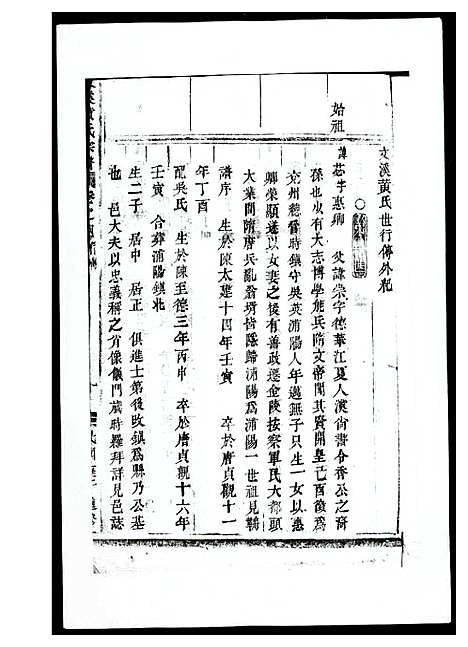 文溪黃氏世行傳外紀
始祖
諱苾字惠卿 父諱崇字德華江夏人漢尚書令香公之裔
孫也少有大志博學能兵隋文帝聞其賢開皇己酉徵爲
兗州總管時鎮守吳英浦陽人年邁無子只生一女以惠
卿榮顯遂以女妻之後有善政遷金陵按察軍民大都頭
大業間隋唐兵亂翁壻皆隱歸浦陽爲浦陽一世祖見鵝
譜序 生於陳太建十四年壬寅 卒於唐貞觀十一
年丁酉
配吳氏 生於陳至德三年丙申 卒於唐貞觀十六年
壬寅 合葬浦陽鎮北
生二子 居中 居正 俱進士第後改鎮爲縣乃公基
也 邑大夫以忠義稱之肖像儀門歲時羅拜詳見邑誌
溪黃氏宗譜